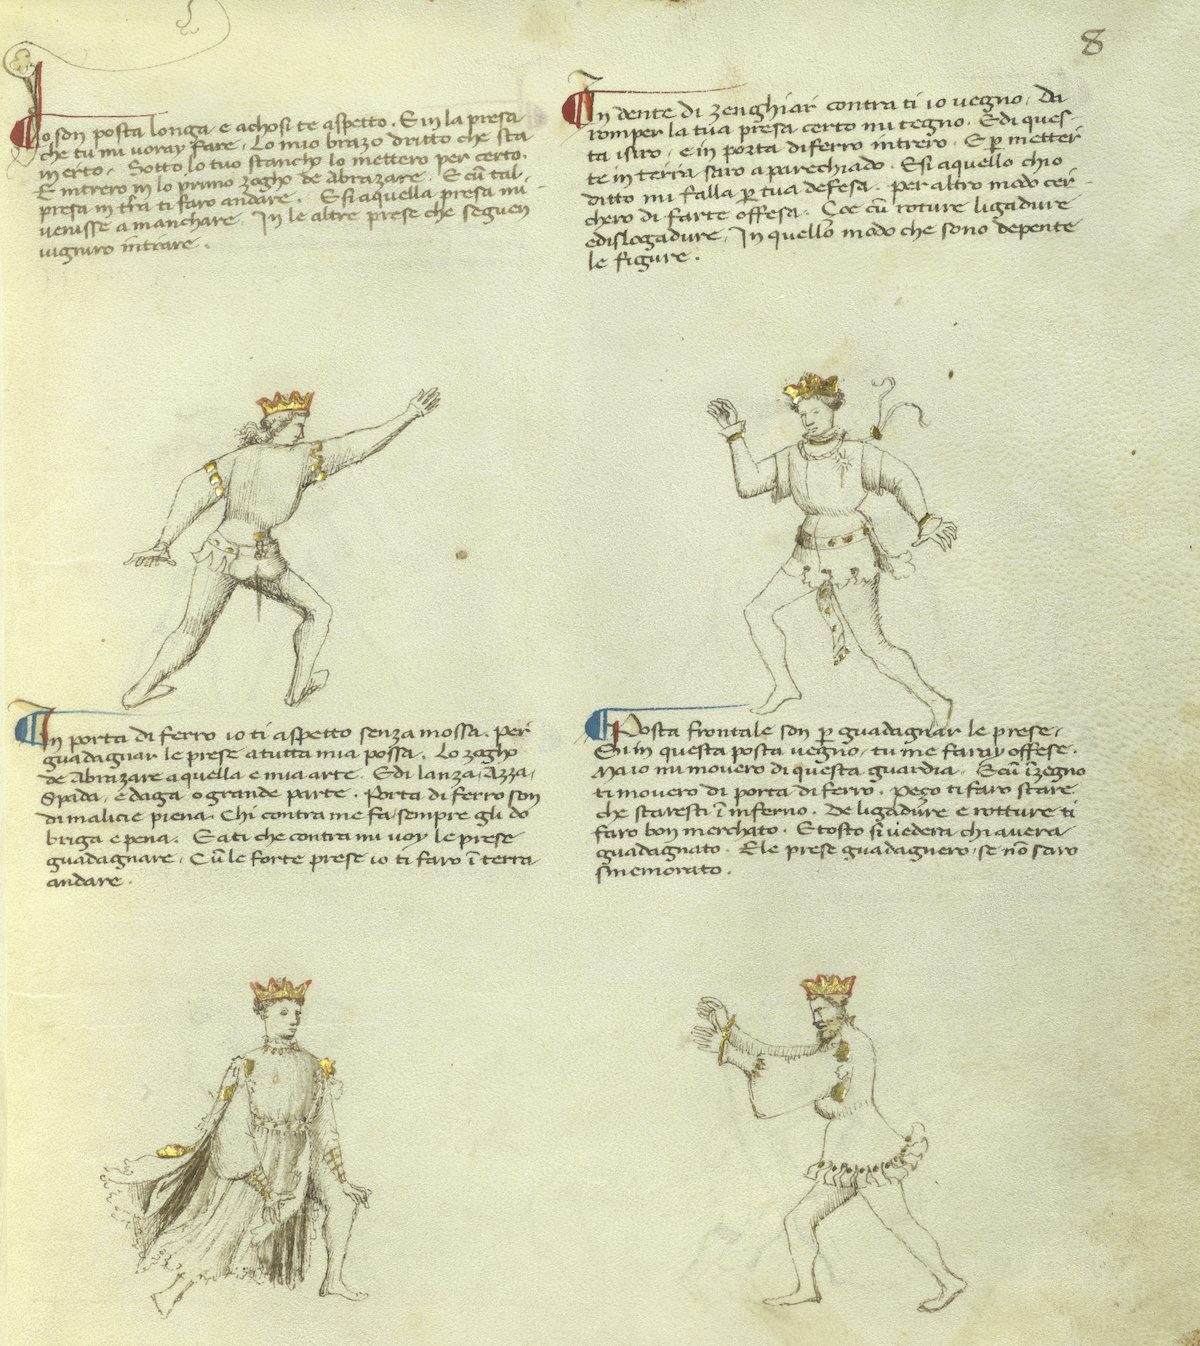 8
Io son posta longa e achosi te aspetto. E in la presa
che tu mi voray fare. Lo mio brazo dritto che sta
in erto. Sotto lo tuo stancho lo mettero per certo.
E intrero in lo primo zogho de abrazare. E cū tal
presa in tr̃a ti faro andare. E si aquella presa mi
venisse a manchare. In le altre prese che seguen
vigniro intrare.
In dente di zenghiar contra ti io vegno. Da
romper la tua presa certo mi tegno. E di ques-
ta isiro, e in porta di ferro intrero. E p̱ metter
te in terra saro aparechiado. E si aquello ch'io
ditto mi falla p̱ tua defesa. per altro modo cer-
chero di farte offesa. Çoe cū roture ligadure
e dislogadure. In quello modo che sono depente
le figure.
In porta di ferro io ti aspetto senza mossa. per
guadagnar le prese a tutta mia possa. Lo zogho
de Abrazare aquella e mia arte. E di lanza, Azza,
Spada, e daga o grande parte. Porta di ferro son
di malicie piena. Chi contra me fa sempre gli do
briga e pena. E a ti che contra mi voy le prese
guadagnare. Cū le forte prese io ti faro ī terra
andare.
Posta frontale son p̱ guadagnar le prese.
Si in questa posta vegno, tu me faray offese.
Ma io mi movero di questa guardia. E cū īzegno
ti movero di porta di ferro. Peço ti faro stare
che staresti ī inferno. De ligadure e rotture ti
faro bon merchato. E tosto si vedera chi avera
guadagnato. E le prese guadagnero se nō saro
smemorato.